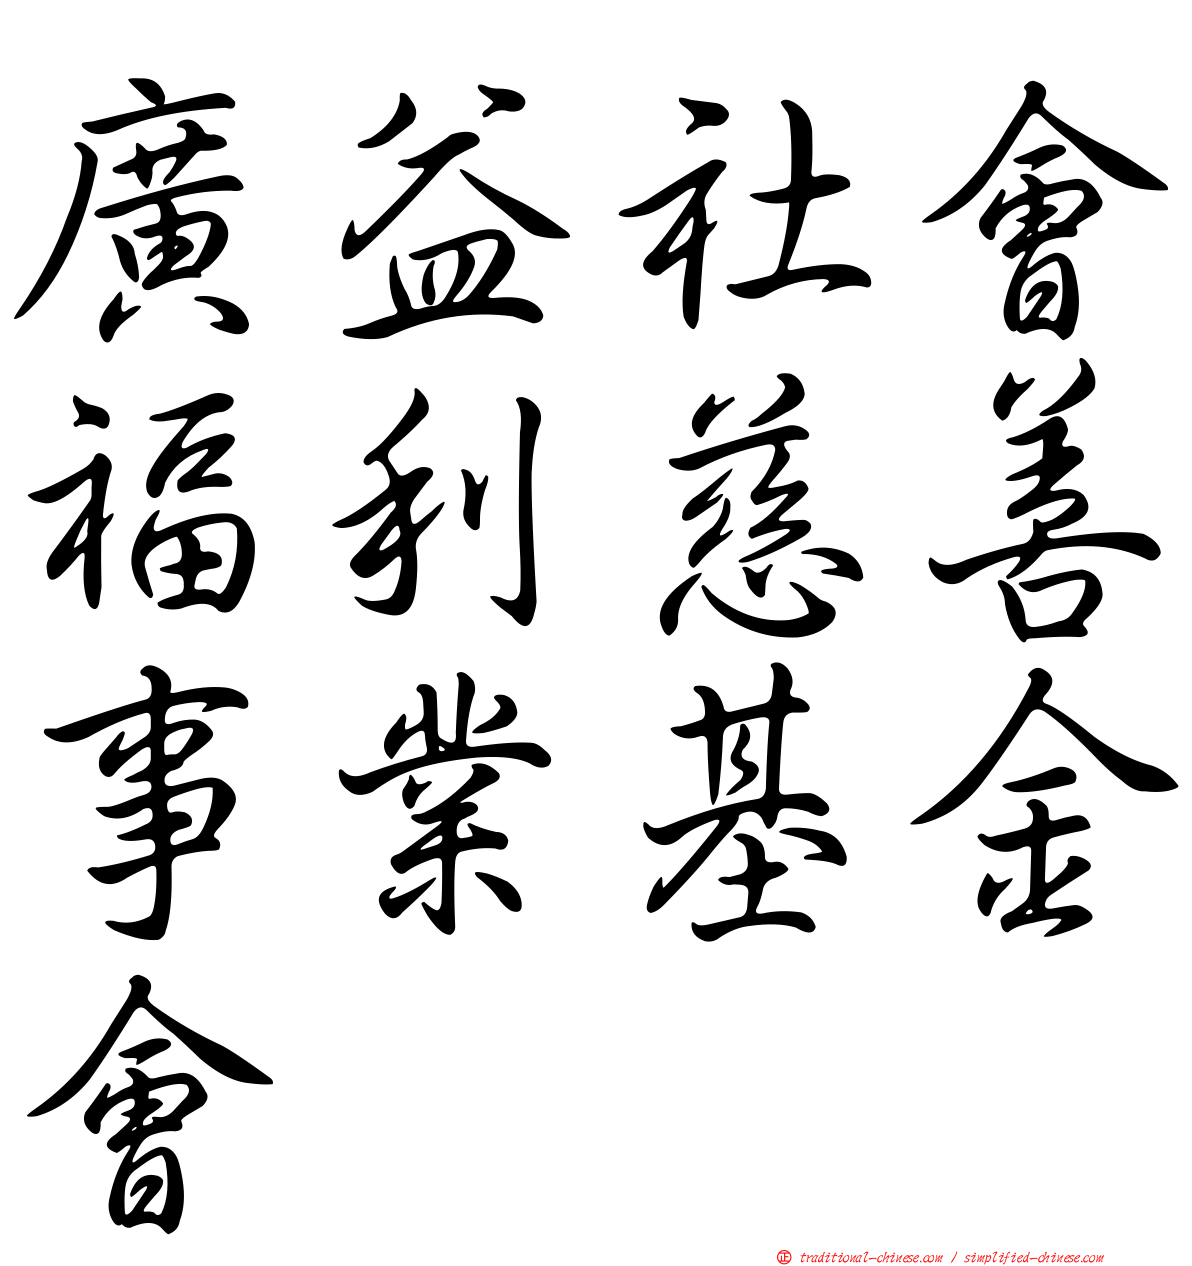 廣益社會
福利慈善
事業基金
會
正 traditional-chinese.com / simplified-chinese.com